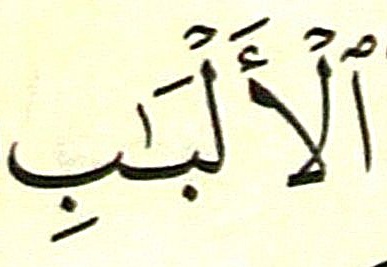 ٱلْأَلْبَٰبِ